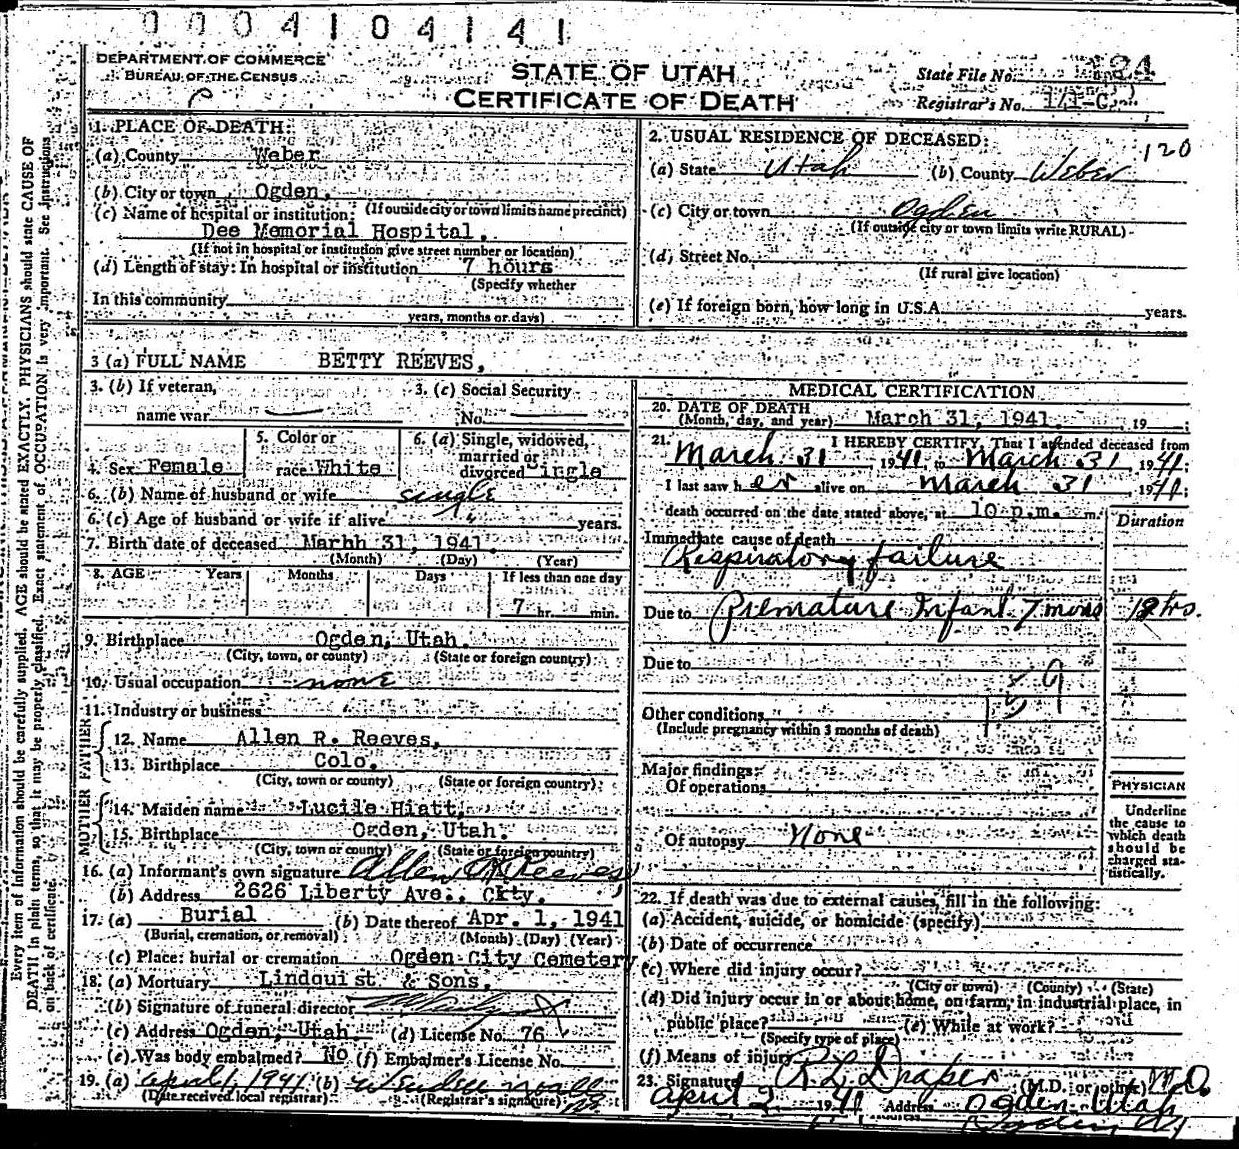 0004104141
DEPARTMENT OF COMMERCE
BUREAU OF THE CENSUS
STATE OF UTAH
CERTIFICATE OF DEATH
State File No. 124
Registrar's No. 141-C
1. PLACE OF DEATH:
(a) County Weber
(b) City or town Ogden,
(If outside city or town limits name precinct)
(c) Name of hospital or institution:
Dee Memorial Hospital.
(If not in hospital or institution give street number or location)
(d) Length of stay: In hospital or institution 7 hours
(Specify whether
In this community
years, months or days)
2. USUAL RESIDENCE OF DECEASED:
120
(a) State Utah (b) County Weber
(c) City or town Ogden
(If outside city or town limits write RURAL)
(d) Street No.
(If rural give location)
(e) If foreign born, how long in U.S.A. years.
3 (a) FULL NAME BETTY REEVES,
3. (b) If veteran, name war
3. (c) Social Security No.
4. Sex Female
5. Color or race White
6. (a) Single, widowed, married or divorced ingle
6. (b) Name of husband or wife single
6. (c) Age of husband or wife if alive " years.
7. Birth date of deceased Marhh 31, 1941.
(Month) (Day) (Year)
8. AGE Years Months Days If less than one day
7 hr. min.
9. Birthplace Ogden, Utah.
(City, town, or county) (State or foreign country)
10. Usual occupation none
11. Industry or business
FATHER
12. Name Allen R. Reeves,
13. Birthplace Colo.
(City, town or county) (State or foreign country)
MOTHER
14. Maiden name Lucile Hiatt,
15. Birthplace Ogden, Utah.
(City, town or county) (State or foreign country)
16. (a) Informant's own signature Allen R Reeves
(b) Address 2626 Liberty Ave., City.
17. (a) Burial (b) Date thereof Apr. 1, 1941
(Burial, cremation, or removal) (Month) (Day) (Year)
(c) Place: burial or cremation Ogden City Cemetery
18. (a) Mortuary Lindquist & Sons.
(b) Signature of funeral director
(c) Address Ogden, Utah. (d) License No. 76
(e) Was body embalmed? No (f) Embalmer's License No.
19. (a) April 1, 1941 (b)
(Date received local registrar) (Registrar's signature)
MEDICAL CERTIFICATION
20. DATE OF DEATH
(Month, day, and year) March 31, 1941. 19
21. I HEREBY CERTIFY, That I attended deceased from
March 31 1941 to March 31, 1941;
I last saw her alive on March 31 1941;
death occurred on the date stated above, at 10 p.m. m.
Duration
Immediate cause of death
Respiratory failure
Due to Premature Infant 7 mons
Due to
Other conditions
(Include pregnancy within 3 months of death)
159
Major findings:
Of operations
Of autopsy None
PHYSICIAN
Underline
the cause to
which death
should be
charged sta-
tistically.
22. If death was due to external causes, fill in the following:
(a) Accident, suicide, or homicide (specify)
(b) Date of occurrence
(c) Where did injury occur?
(City or town) (County) (State)
(d) Did injury occur in or about home, on farm, in industrial place, in
public place? (e) While at work?
(Specify type of place)
(f) Means of injury
23. Signature R. L. Draper (M.D. or other) M.D.
April 2 1941 Address Ogden Utah
Every item of information should be carefully supplied. AGE should be stated EXACTLY. PHYSICIANS should state CAUSE OF
DEATH in plain terms, so that it may be properly classified. Exact statement of OCCUPATION is very important. See instructions
on back of certificate.